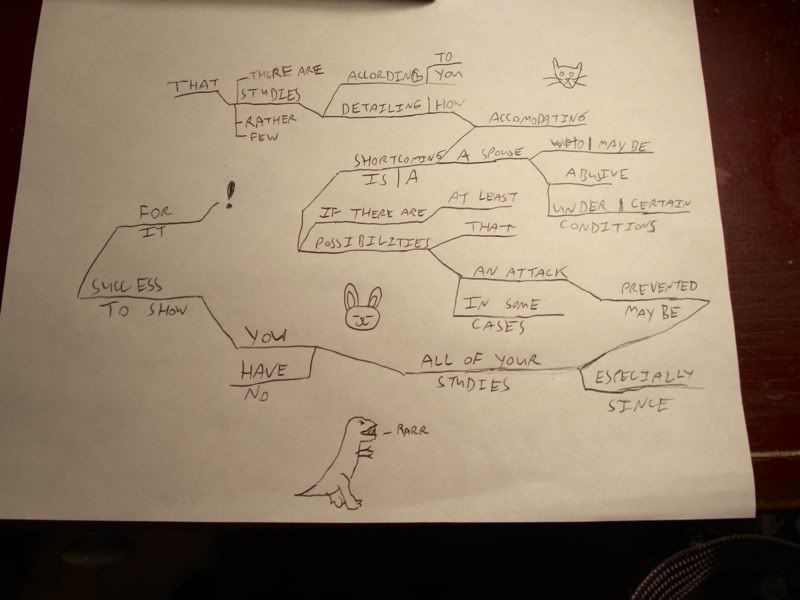 TO
THERE ARE
ACCORDING | YOU
THAT
STUDIES
DETAILING | HOW
RATHER
FEW
ACCOMODATING
SHORTCOMING
A SPOUSE
WHO | MAY BE
IS | A
ABUSIVE
AT LEAST
UNDER | CERTAIN
CONDITIONS
FOR
IT
!
IF THERE ARE
THAT
POSSIBILITIES
AN ATTACK
PREVENTED
SUCCESS
TO SHOW
IN SOME
CASES
MAY BE
YOU
HAVE
NO
ALL OF YOUR
STUDIES
ESPECIALLY
SINCE
RARR